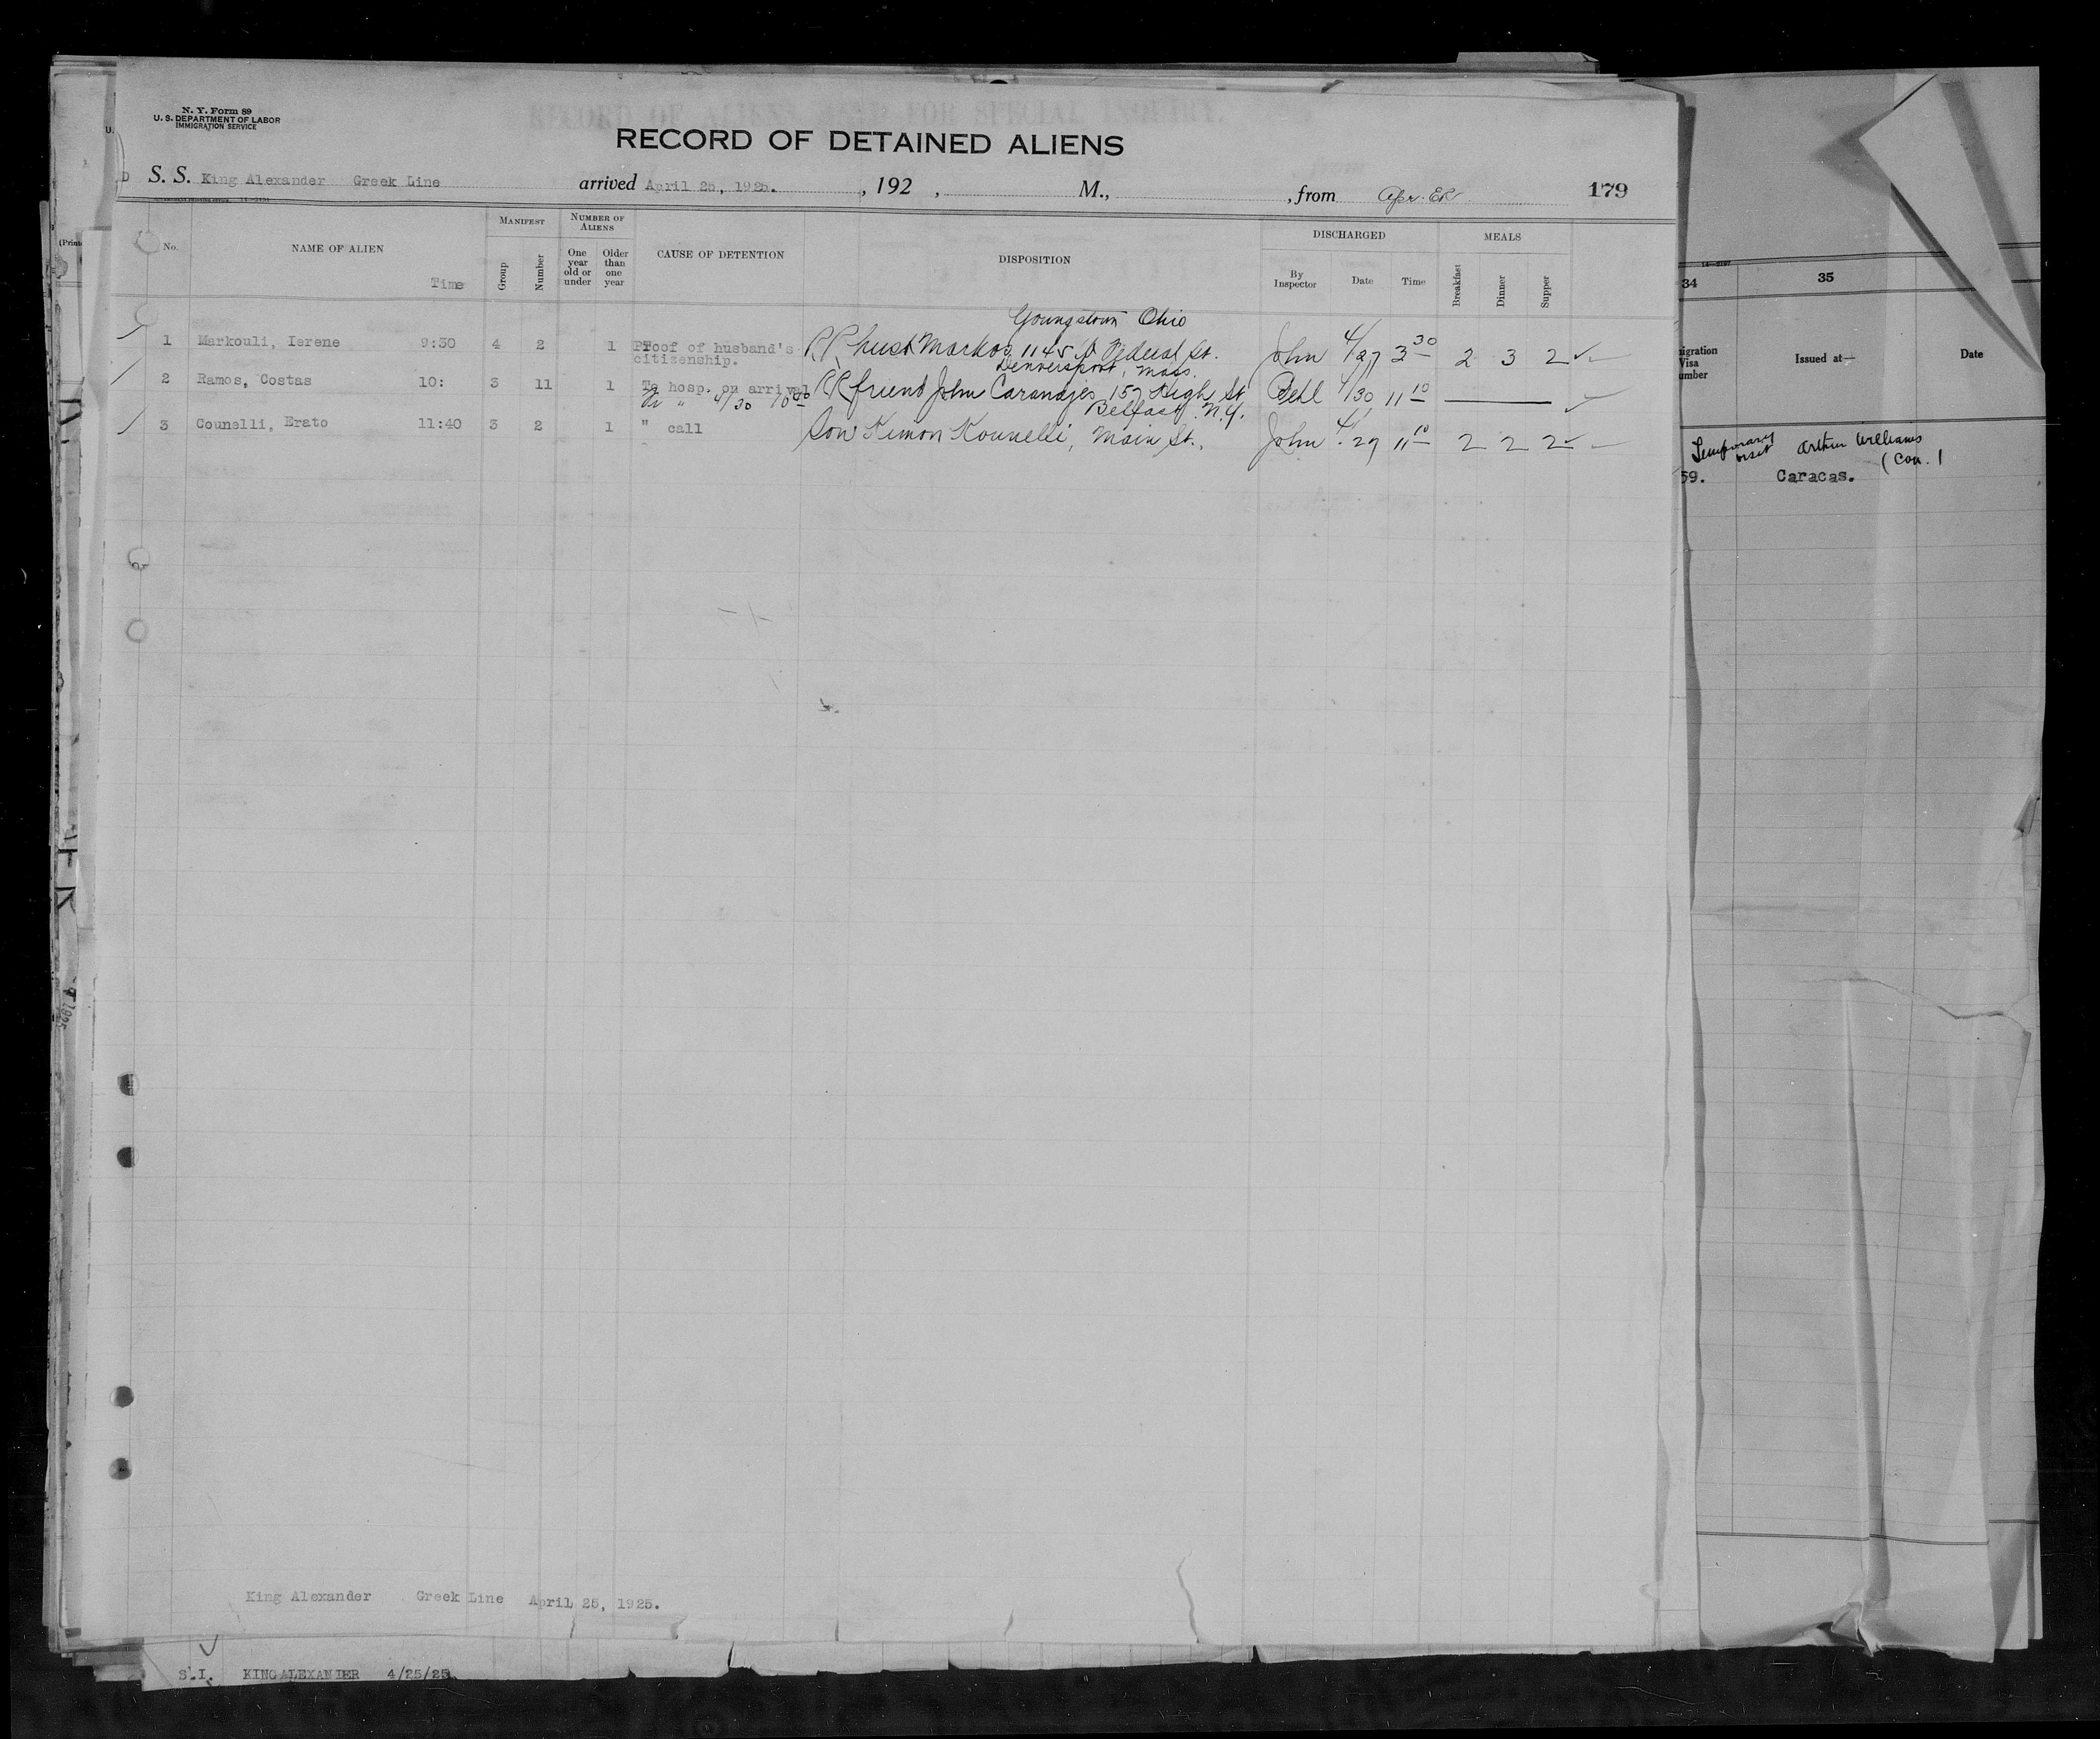 N. Y. Form 89
U. S. DEPARTMENT OF LABOR
IMMIGRATION SERVICE
RECORD OF DETAINED ALIENS
S. S. King Alexander Greek Line arrived April 25, 1925. , 192 , M., , from 179
No. NAME OF ALIEN Time MANIFEST Group Number NUMBER OF ALIENS One year old or under Older than one year CAUSE OF DETENTION DISPOSITION DISCHARGED By Inspector Date Time MEALS Breakfast Dinner Supper
Youngstown Ohio
1 Markouli, Ierene 9:30 4 2 1 Proof of husband's citizenship. husb Markos, 1145 W Federal St. John 4/27 3 30 2 3 2
Denversport, Mass.
2 Ramos, Costas 10: 3 11 1 To hosp. on arrival RR friend John Carandjes 157 High St 4/30 11 10
" 4/30
Belfast N.Y.
3 Counelli, Erato 11:40 3 2 1 " call Son Kimon Kounelli, Main St., John 4/29 11 10 2 2 2
King Alexander Greek Line April 25, 1925.
S.I. KING ALEXANDER 4/25/25
34 35
Visa
Issued at—
Date
Temporary visit Arthur Williams
(Con.
59. Caracas.